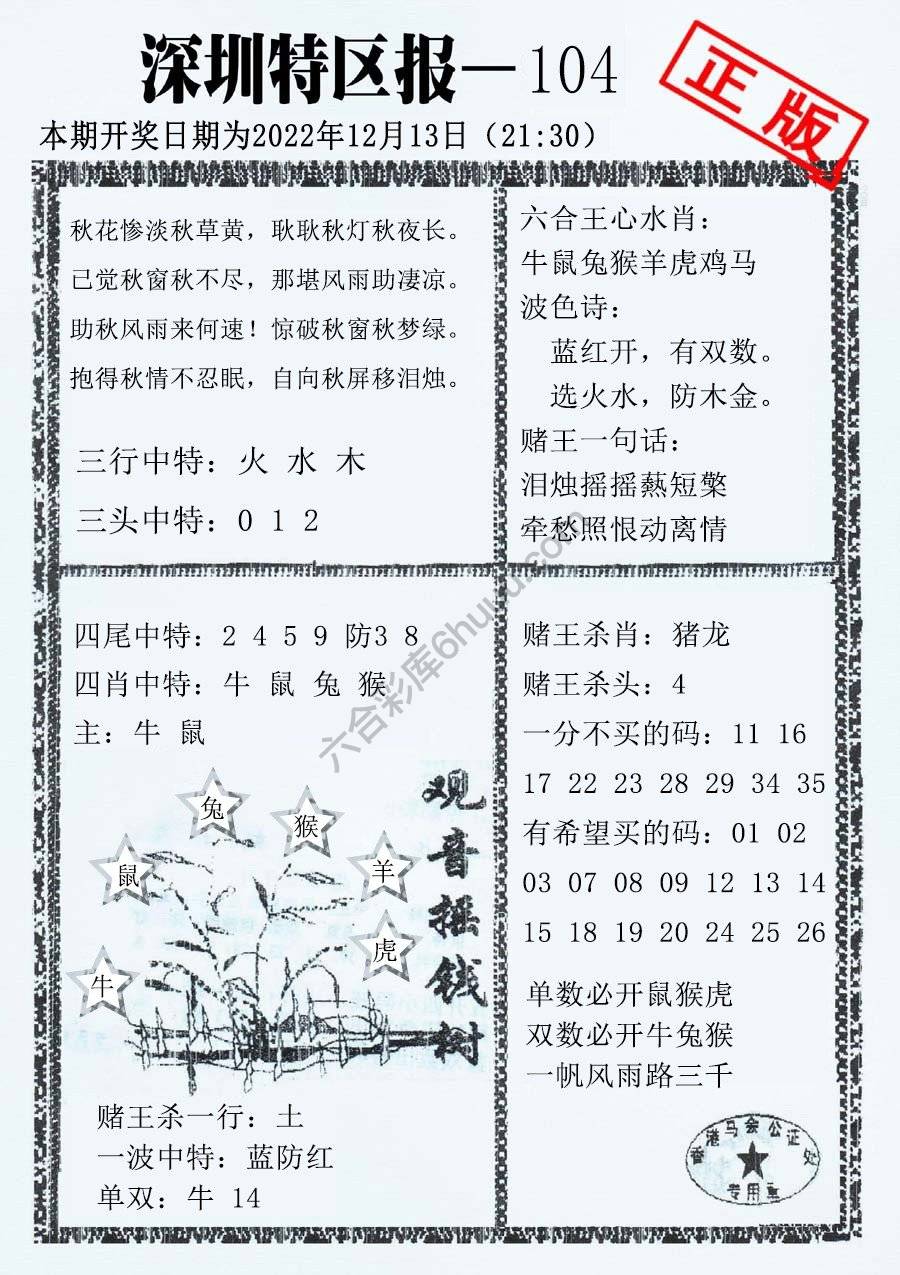 深圳特区报—104
正版
本期开奖日期为2022年12月13日（21:30）
秋花惨淡秋草黄，耿耿秋灯秋夜长。
已觉秋窗秋不尽，那堪风雨助凄凉。
助秋风雨来何速！惊破秋窗秋梦绿。
抱得秋情不忍眠，自向秋屏移泪烛。
三行中特：火 水 木
三头中特：0 1 2
六合王心水肖：
牛鼠兔猴羊虎鸡马
波色诗：
蓝红开，有双数。
选火水，防木金。
赌王一句话：
泪烛摇摇爇短檠
牵愁照恨动离情
四尾中特：2 4 5 9 防3 8
四肖中特：牛 鼠 兔 猴
主：牛 鼠
兔
猴
鼠
羊
虎
牛
观音摇钱树
赌王杀一行：土
一波中特：蓝防红
单双：牛 14
赌王杀肖：猪龙
赌王杀头：4
一分不买的码：11 16
17 22 23 28 29 34 35
有希望买的码：01 02
03 07 08 09 12 13 14
15 18 19 20 24 25 26
单数必开鼠猴虎
双数必开牛兔猴
一帆风雨路三千
香港马会公证处
专用章
六合彩库6huuu.com